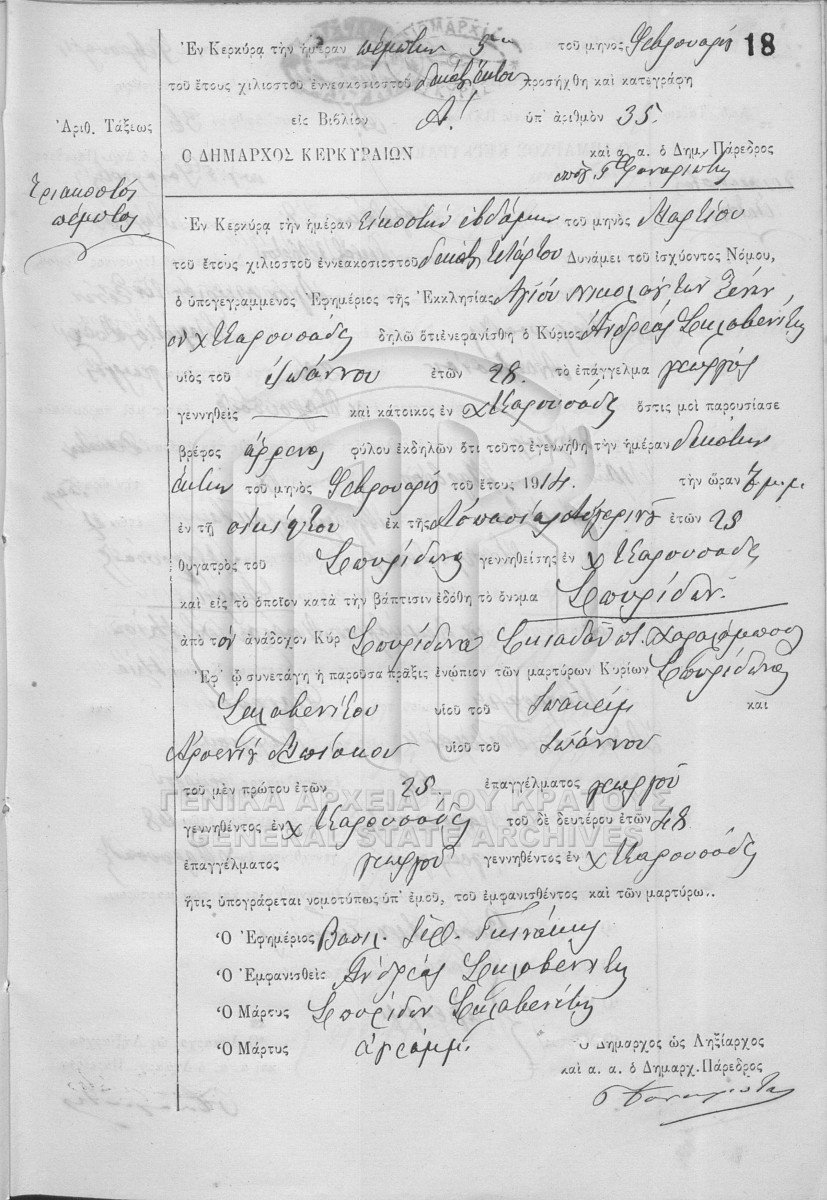 18
Ἐν Κερκύρᾳ τὴν ἡμέραν πέμπτην 5ην τοῦ μηνὸς Φεβρουαρίου
τοῦ ἔτους χιλιοστοῦ ἐννεακοσιοστοῦ προσήχθη καὶ κατεγράφη
Ἀριθ. Τάξεως εἰς Βιβλίον Α! ὑπ' ἀριθμὸν 35.
Ο ΔΗΜΑΡΧΟΣ ΚΕΡΚΥΡΑΙΩΝ καὶ α. α. ὁ Δημ. Πάρεδρος
Τριακοστὸς
πέμπτος
Ἐν Κερκύρᾳ τὴν ἡμέραν Εἰκοστὴν ἑβδόμην τοῦ μηνὸς Μαρτίου
τοῦ ἔτους χιλιοστοῦ ἐννεακοσιοστοῦ δεκάτου Τετάρτου Δυνάμει τοῦ ἰσχύοντος Νόμου,
ὁ ὑπογεγραμμενος Ἐφημέριος τῆς Ἐκκλησίας Ἁγίου Νικολάου τῶν Ξένων
ἐν χ Καρουσάδες δηλῶ ὅτι ἐνεφανίσθη ὁ Κύριος Ἀνδρέας Σκλαβενίτης
υἱὸς τοῦ Ἰωάννου ἐτῶν 28. τὸ ἐπάγγελμα γεωργὸς
γεννηθεὶς καὶ κάτοικος ἐν χ Καρουσάδες ὅστις μοὶ παρουσίασε
βρέφος ἄρρενος φύλου ἐκδηλῶν ὅτι τοῦτο ἐγεννήθη τὴν ἡμέραν δεκάτην
ἕκτην τοῦ μηνὸς Φεβρουαρίου τοῦ ἔτους 1914. τὴν ὥραν 7 μ.μ.
ἐν τῇ οἰκίᾳ του ἐκ τῆς ἐτῶν 25
θυγατρὸς τοῦ Σπυρίδωνος γεννηθείσης ἐν χ Καρουσάδες
καὶ εἰς τὸ ὁποῖον κατὰ τὴν βάπτισιν ἐδόθη τὸ ὄνομα Σπυρίδων.
ἀπὸ τὸν ἀνάδοχον Κύρ Σπυρίδωνα Σκιαδᾶν Χαραλάμπους
Ἐφ' ᾧ συνετάγη ἡ παροῦσα πρᾶξις ἐνώπιον τῶν μαρτύρων Κυρίων Σπυρίδωνος
Σκλαβενίτου υἱοῦ τοῦ Ἰωακεὶμ καὶ
Ἀρσενίου υἱοῦ τοῦ Ἰωάννου
τοῦ μὲν πρώτου ἐτῶν 25 ἐπαγγέλματος γεωργοῦ
ΓΕΝΙΚΑ ΑΡΧΕΙΑ ΤΟΥ ΚΡΑΤΟΥΣ
γεννηθέντος ἐν χ Καρουσάδες τοῦ δὲ δευτέρου ἐτῶν 48
GENERAL STATE ARCHIVES
ἐπαγγέλματος γεωργοῦ γεννηθέντος ἐν χ Καρουσάδες
ἥτις ὑπογράφεται νομοτύπως ὑπ' ἐμοῦ, τοῦ ἐμφανισθέντος καὶ τῶν μαρτύρω..
Ὁ Ἐφημέριος Βασιλ.
Ὁ Ἐμφανισθεὶς Ἀνδρέας Σκλαβενίτης
Ὁ Μάρτυς Σπυρίδων Σκλαβενίτης
Ὁ Μάρτυς ἀγράμμ.
Ὁ Δήμαρχος ὡς Ληξίαρχος
καὶ α. α. ὁ Δημαρχ. Πάρεδρος